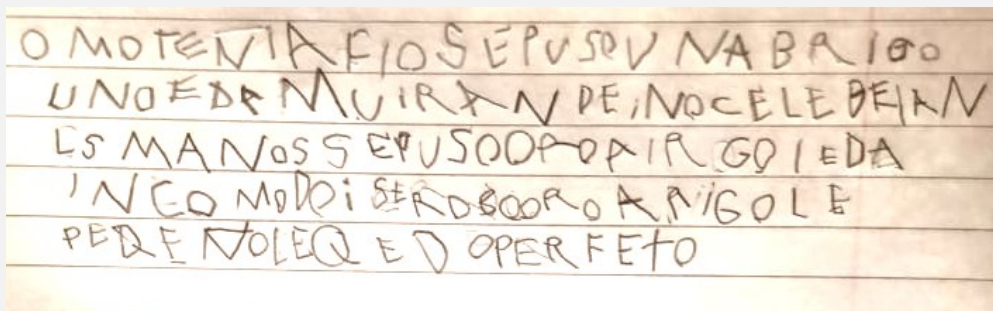 O MOTENIA FIO SEPUSOU NABRIGO
UNOEDA MUIRAN DE,NOCELEBEIAN
LS MANOS SEPUSOOPOPAIRGOIEDA
INCOMODOI SE RO ARIGOLE
PEQENOLEQEDOPERFETO